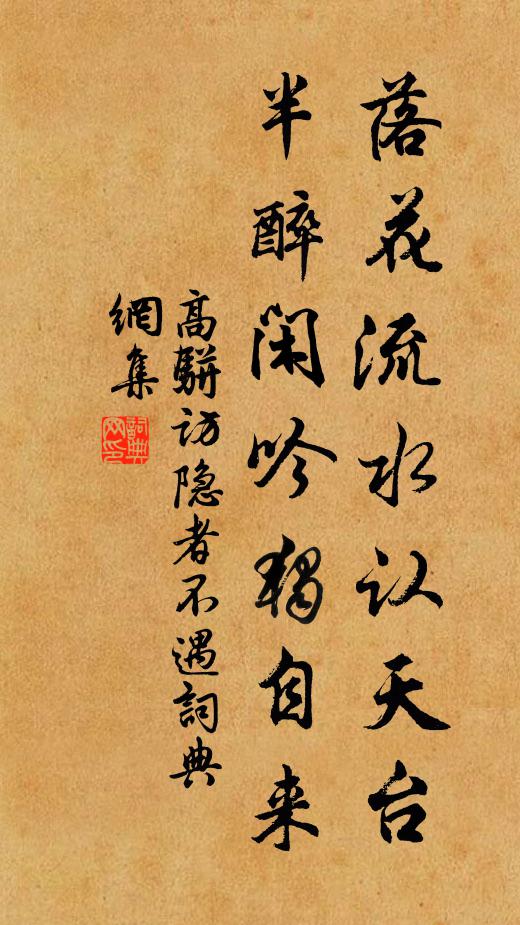 落花流水认天台
半醉闲吟独自来
高駢访隐者不遇詞典
網集
詞典网印